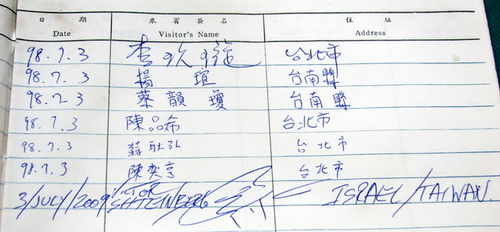 日期 來賓簽名 住址
Date Visitor's Name Address
98.7.3 台北市
98.7.3 楊瑄 台南縣
98.7.3 蔡韻瓊 台南縣
98.7.3 陳品希 台北市
98.7.3 台北市
98.7.3 陳奕亨 台北市
3/JULY/2009 VICTOR SHTEINBERG ISRAEL/TAIWAN.